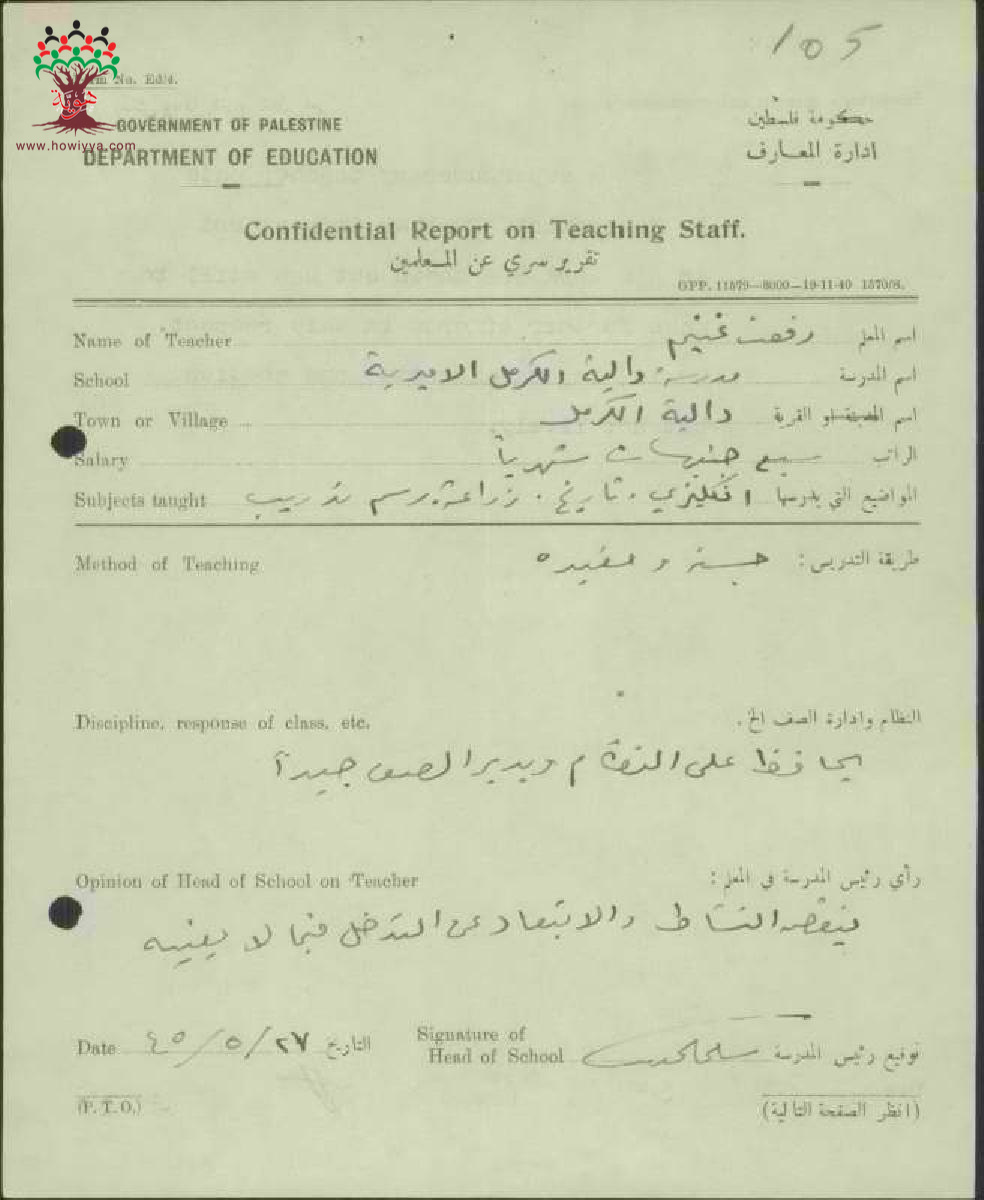 105
Form No. Ed/4.
هوية
www.howiyya.com
GOVERNMENT OF PALESTINE
DEPARTMENT OF EDUCATION
حكومة فلسطين
ادارة المعارف
Confidential Report on Teaching Staff.
تقرير سري عن المعلمين
GPP. 11579—8000—19-11-40 1570/8.
Name of Teacher رفعت غنيم اسم المعلم
School مدرسة دالية الكرمل الاميرية اسم المدرسة
Town or Village دالية الكرمل اسم المدينة او القرية
Salary سبع جنيهات شهرياً الراتب
Subjects taught انكليزي. تاريخ. زراعة. رسم تدريب المواضيع التي يدرسها
Method of Teaching حسنة و مفيده طريقة التدريس:
Discipline, response of class, etc. النظام وادارة الصف الخ.
يحافظ على النظام ويدير الصف جيداً
Opinion of Head of School on Teacher رأي رئيس المدرسة في المعلم:
ينقصه النشاط والابتعاد عن التدخل فيما لا يعنيه
Date ٢٧/٥/٤٥ التاريخ Signature of
Head of School توقيع رئيس المدرسة
(P. T. O.) (انظر الصفحة التالية)